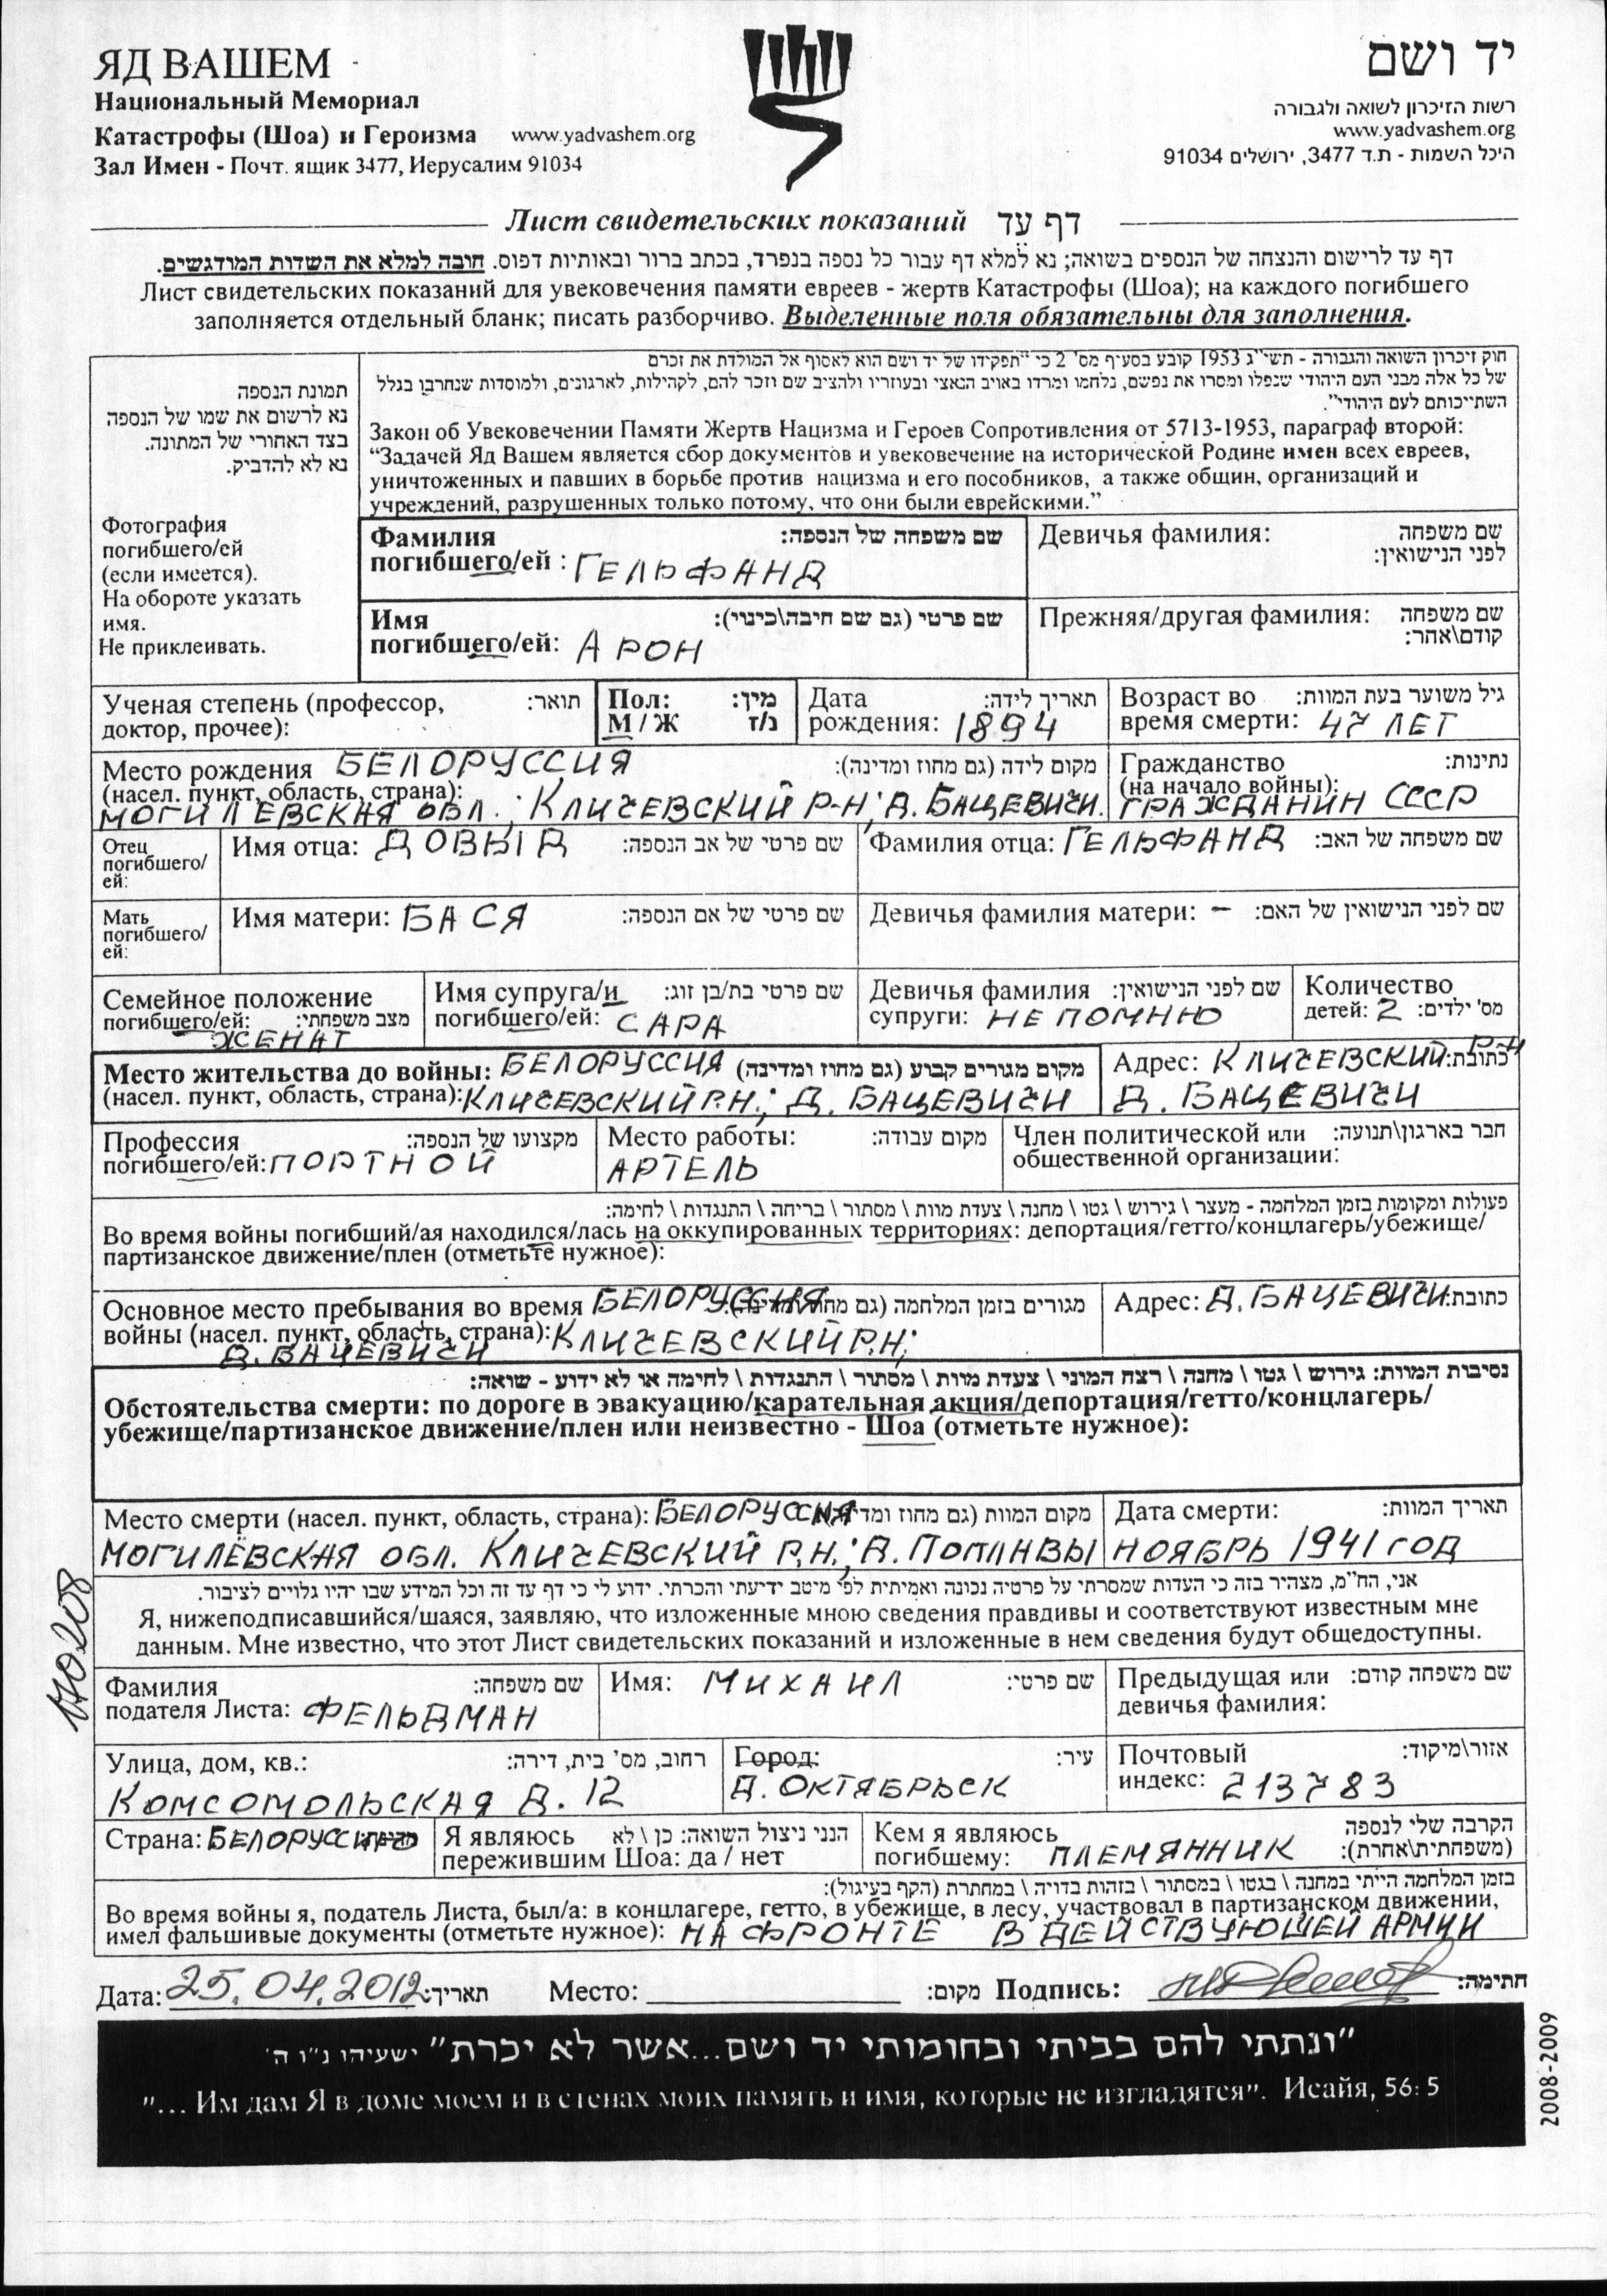 ЯД ВАШЕМ
Национальный Мемориал
Катастрофы (Шоа) и Героизма www.yadvashem.org
Зал Имен - Почт. ящик 3477, Иерусалим 91034
יד ושם
רשות הזיכרון לשואה ולגבורה
www.yadvashem.org
היכל השמות - ת.ד 3477, ירושלים 91034
Лист свидетельских показаний דף עד
דף עד לרישום והנצחה של הנספים בשואה; נא למלא דף עבור כל נספה בנפרד, בכתב ברור ובאותיות דפוס. חובה למלא את השדות המודגשים.
Лист свидетельских показаний для увековечения памяти евреев - жертв Катастрофы (Шоа); на каждого погибшего
заполняется отдельный бланк; писать разборчиво. Выделенные поля обязательны для заполнения.
תמונת הנספה
נא לרשום את שמו של הנספה
בצד האחורי של המתונה.
נא לא להדביק.
Фотография
погибшего/ей
(если имеется).
На обороте указать
имя.
Не приклеивать.
חוק זיכרון השואה והגבורה - תשי"ג 1953 קובע בסעיף מס' 2 כי "תפקידו של יד ושם הוא לאסוף אל המולדת את זכרם
של כל אלה מבני העם היהודי שנפלו ומסרו את נפשם, נלחמו ומרדו באויב הנאצי ובעוזריו ולהציב שם וזכר להם, לקהילות, לארגונים, ולמוסדות שנחרבו בגלל
השתייכותם לעם היהודי".
Закон об Увековечении Памяти Жертв Нацизма и Героев Сопротивления от 5713-1953, параграф второй:
“Задачей Яд Вашем является сбор документов и увековечение на исторической Родине имен всех евреев,
уничтоженных и павших в борьбе против нацизма и его пособников, а также общин, организаций и
учреждений, разрушенных только потому, что они были еврейскими.”
Фамилия שם משפחה של הנספה:
погибшего/ей : ГЕЛЬФАНД
Девичья фамилия: שם משפחה
לפני הנישואין:
Имя שם פרטי (גם שם חיבה\כינוי):
погибшего/ей: АРОН
Прежняя/другая фамилия: שם משפחה
קודם\אחר:
Ученая степень (профессор, תואר:
доктор, прочее):
Пол: מין:
М / Ж ז/נ
Дата תאריך לידה:
рождения: 1894
Возраст во גיל משוער בעת המוות:
время смерти: 47 ЛЕТ
Место рождения БЕЛОРУССИЯ מקום לידה (גם מחוז ומדינה):
(насел. пункт, область, страна):
МОГИЛЕВСКАЯ ОБЛ.; КЛИЧЕВСКИЙ Р-Н; Д. БАЦЕВИЧИ.
Гражданство נתינות:
(на начало войны):
ГРАЖДАНИН СССР
Отец
погибшего/
ей:
Имя отца: ДОВЫД שם פרטי של אב הנספה:
Фамилия отца: ГЕЛЬФАНД שם משפחה של האב:
Мать
погибшего/
ей:
Имя матери: БАСЯ שם פרטי של אם הנספה:
Девичья фамилия матери: – שם לפני הנישואין של האם:
Семейное положение
погибшего/ей: מצב משפחתי:
ЖЕНАТ
Имя супруга/и שם פרטי בת/בן זוג:
погибшего/ей: САРА
Девичья фамилия שם לפני הנישואין:
супруги: НЕ ПОМНЮ
Количество
детей: 2 מס' ילדים:
Место жительства до войны: БЕЛОРУССИЯ מקום מגורים קבוע (גם מחוז ומדינה)
(насел. пункт, область, страна): КЛИЧЕВСКИЙ Р.Н.; Д. БАЦЕВИЧИ
Адрес: КЛИЧЕВСКИЙ Р-Н כתובת:
Д. БАЦЕВИЧИ
Профессия מקצועו של הנספה:
погибшего/ей: ПОРТНОЙ
Место работы: מקום עבודה:
АРТЕЛЬ
Член политической или חבר בארגון\תנועה:
общественной организации:
פעולות ומקומות בזמן המלחמה - מעצר \ גירוש \ גטו \ מחנה \ צעדת מוות \ מסתור \ בריחה \ התנגדות \ לחימה:
Во время войны погибший/ая находился/лась на оккупированных территориях: депортация/гетто/концлагерь/убежище/
партизанское движение/плен (отметьте нужное):
Основное место пребывания во время БЕЛОРУССИЯ מגורים בזמן המלחמה (גם מחוז ומדינה):
войны (насел. пункт, область, страна): КЛИЧЕВСКИЙ Р.Н;
Д. БАЦЕВИЧИ
Адрес: Д. БАЦЕВИЧИ כתובת:
נסיבות המוות: גירוש \ גטו \ מחנה \ רצח המוני \ צעדת מוות \ מסתור \ התנגדות \ לחימה או לא ידוע - שואה:
Обстоятельства смерти: по дороге в эвакуацию/карательная акция/депортация/гетто/концлагерь/
убежище/партизанское движение/плен или неизвестно - Шоа (отметьте нужное):
Место смерти (насел. пункт, область, страна): БЕЛОРУССИЯ מקום המוות (גם מחוז ומדינה):
МОГИЛЁВСКАЯ ОБЛ. КЛИЧЕВСКИЙ Р.Н.; Д. ПОПЛАВЫ
Дата смерти: תאריך המוות:
НОЯБРЬ 1941 ГОД
אני, הח"מ, מצהיר בזה כי העדות שמסרתי על פרטיה נכונה ואמיתית לפי מיטב ידיעתי והכרתי. ידוע לי כי דף עד זה וכל המידע שבו יהיו גלויים לציבור.
Я, нижеподписавшийся/шаяся, заявляю, что изложенные мною сведения правдивы и соответствуют известным мне
данным. Мне известно, что этот Лист свидетельских показаний и изложенные в нем сведения будут общедоступны.
Фамилия שם משפחה:
подателя Листа: ФЕЛЬДМАН
Имя: МИХАИЛ שם פרטי:
Предыдущая или שם משפחה קודם:
девичья фамилия:
Улица, дом, кв.: רחוב, מס' בית, דירה:
КОМСОМОЛЬСКАЯ Д. 12
Город: עיר:
Д. ОКТЯБРЬСК
Почтовый אזור\מיקוד:
индекс: 213783
Страна: БЕЛОРУССИЯ
Я являюсь הנני ניצול השואה: כן \ לא
пережившим Шоа: да / нет
Кем я являюсь הקרבה שלי לנספה
погибшему: ПЛЕМЯННИК (משפחתית\אחרת):
בזמן המלחמה הייתי במחנה \ בגטו \ במסתור \ בזהות בדויה \ במחתרת (הקף בעיגול):
Во время войны я, податель Листа, был/а: в концлагере, гетто, в убежище, в лесу, участвовал в партизанском движении,
имел фальшивые документы (отметьте нужное): НА ФРОНТЕ В ДЕЙСТВУЮЩЕЙ АРМИИ
Дата: 25.04.2012 תאריך: Место: מקום: Подпись: חתימה:
"ונתתי להם בביתי ובחומותי יד ושם...אשר לא יכרת" ישעיהו נ"ו ה'
"... Им дам Я в доме моем и в стенах моих память и имя, которые не изгладятся". Исайя, 56: 5
2008-2009